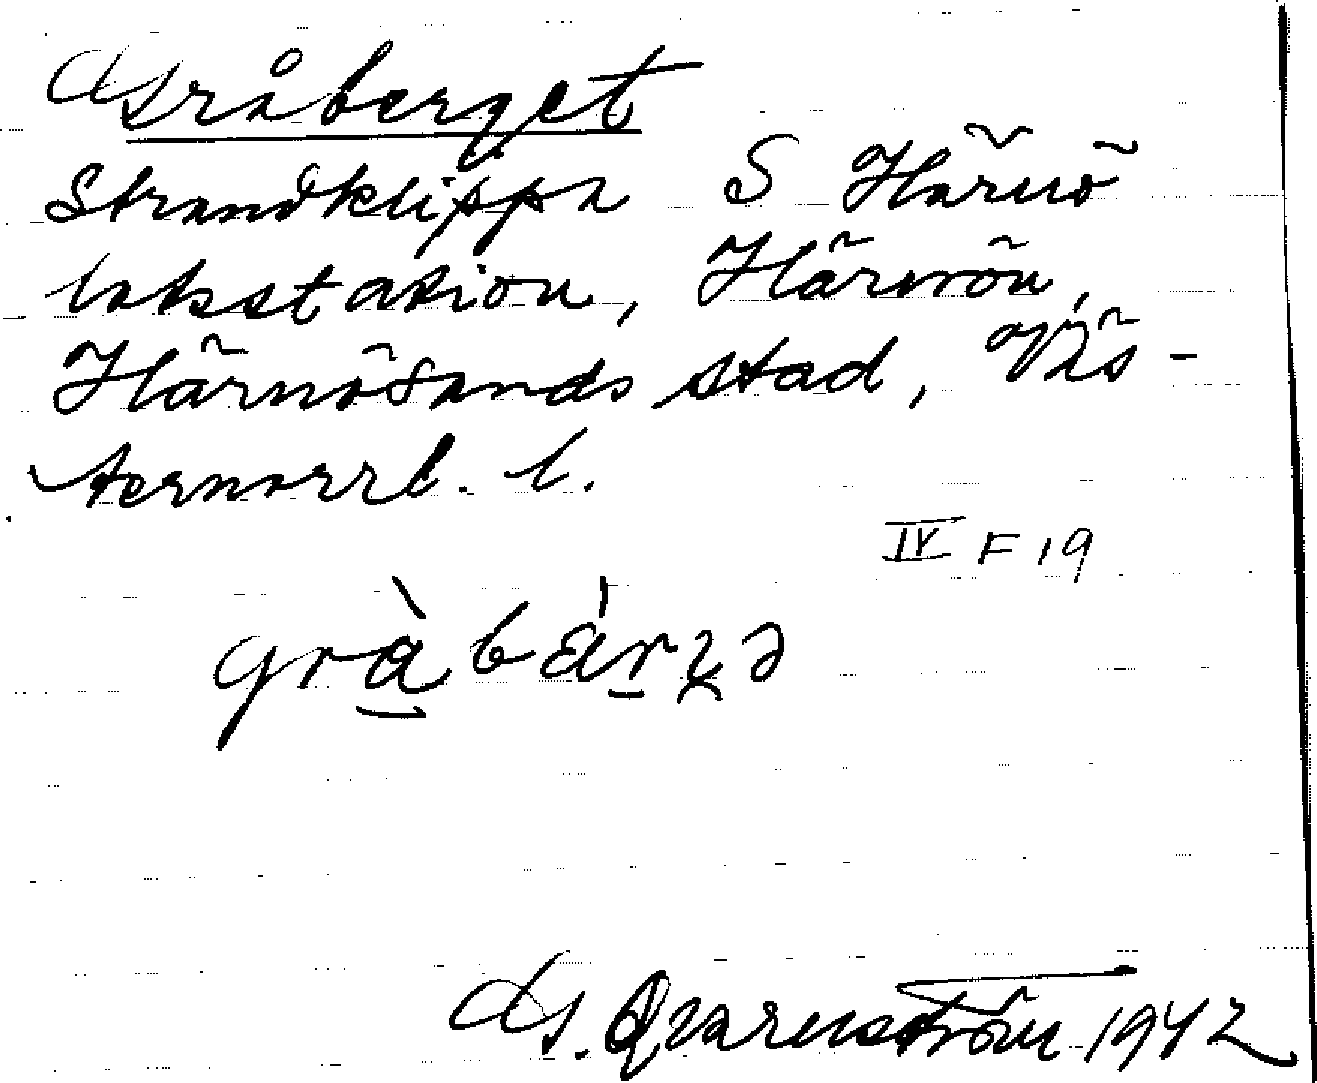 Gråberget
Strandklippa S Härnö
lotsstation, Härnön,
Härnösands stad, Väs-
ternorrl. l.
IV F 19
G. Qvarnström 1942